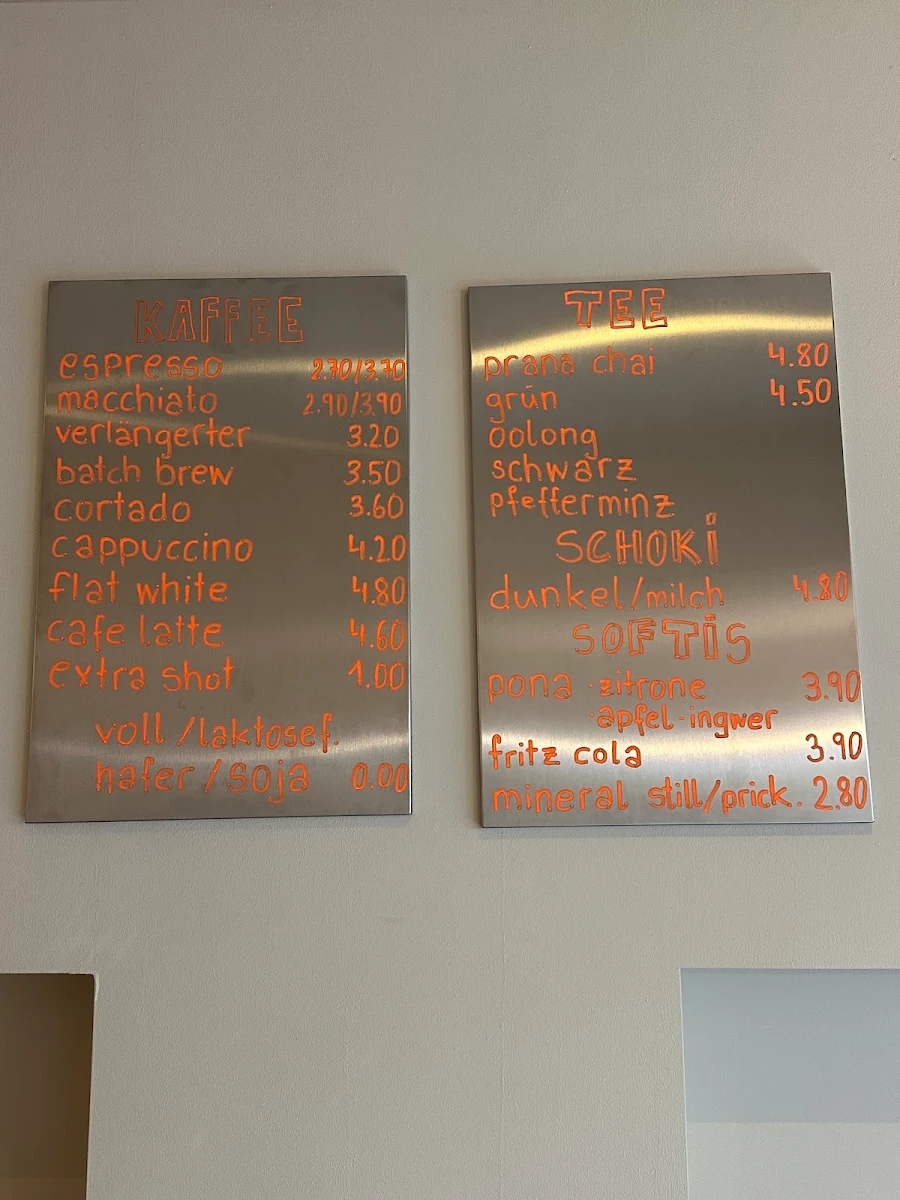 KAFFEE
espresso 2.70/3.70
macchiato 2.90/3.90
verlängerter 3.20
batch brew 3.50
cortado 3.60
cappuccino 4.20
flat white 4.80
cafe latte 4.60
extra shot 1.00
voll/laktosef.
hafer/soja 0.00
TEE
prana chai 4.80
grün 4.50
oolong
schwarz
pfefferminz
SCHOKi
dunkel/milch 4.80
SOFTiS
pona ·zitrone 3.90
·apfel-ingwer
fritz cola 3.90
mineral still/prick. 2.80